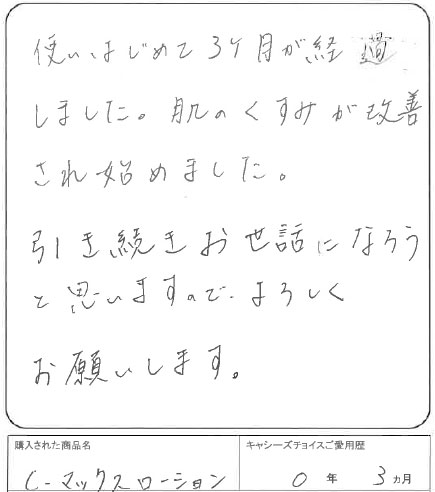 使いはじめて3ヶ月が経過
しました。肌のくすみが改善
され始めました。
引き続きお世話になろう
と思いますので、よろしく
お願いします。
購入された商品名
C-マックスローション
キャシーズチョイスご愛用歴
0年 3ヵ月